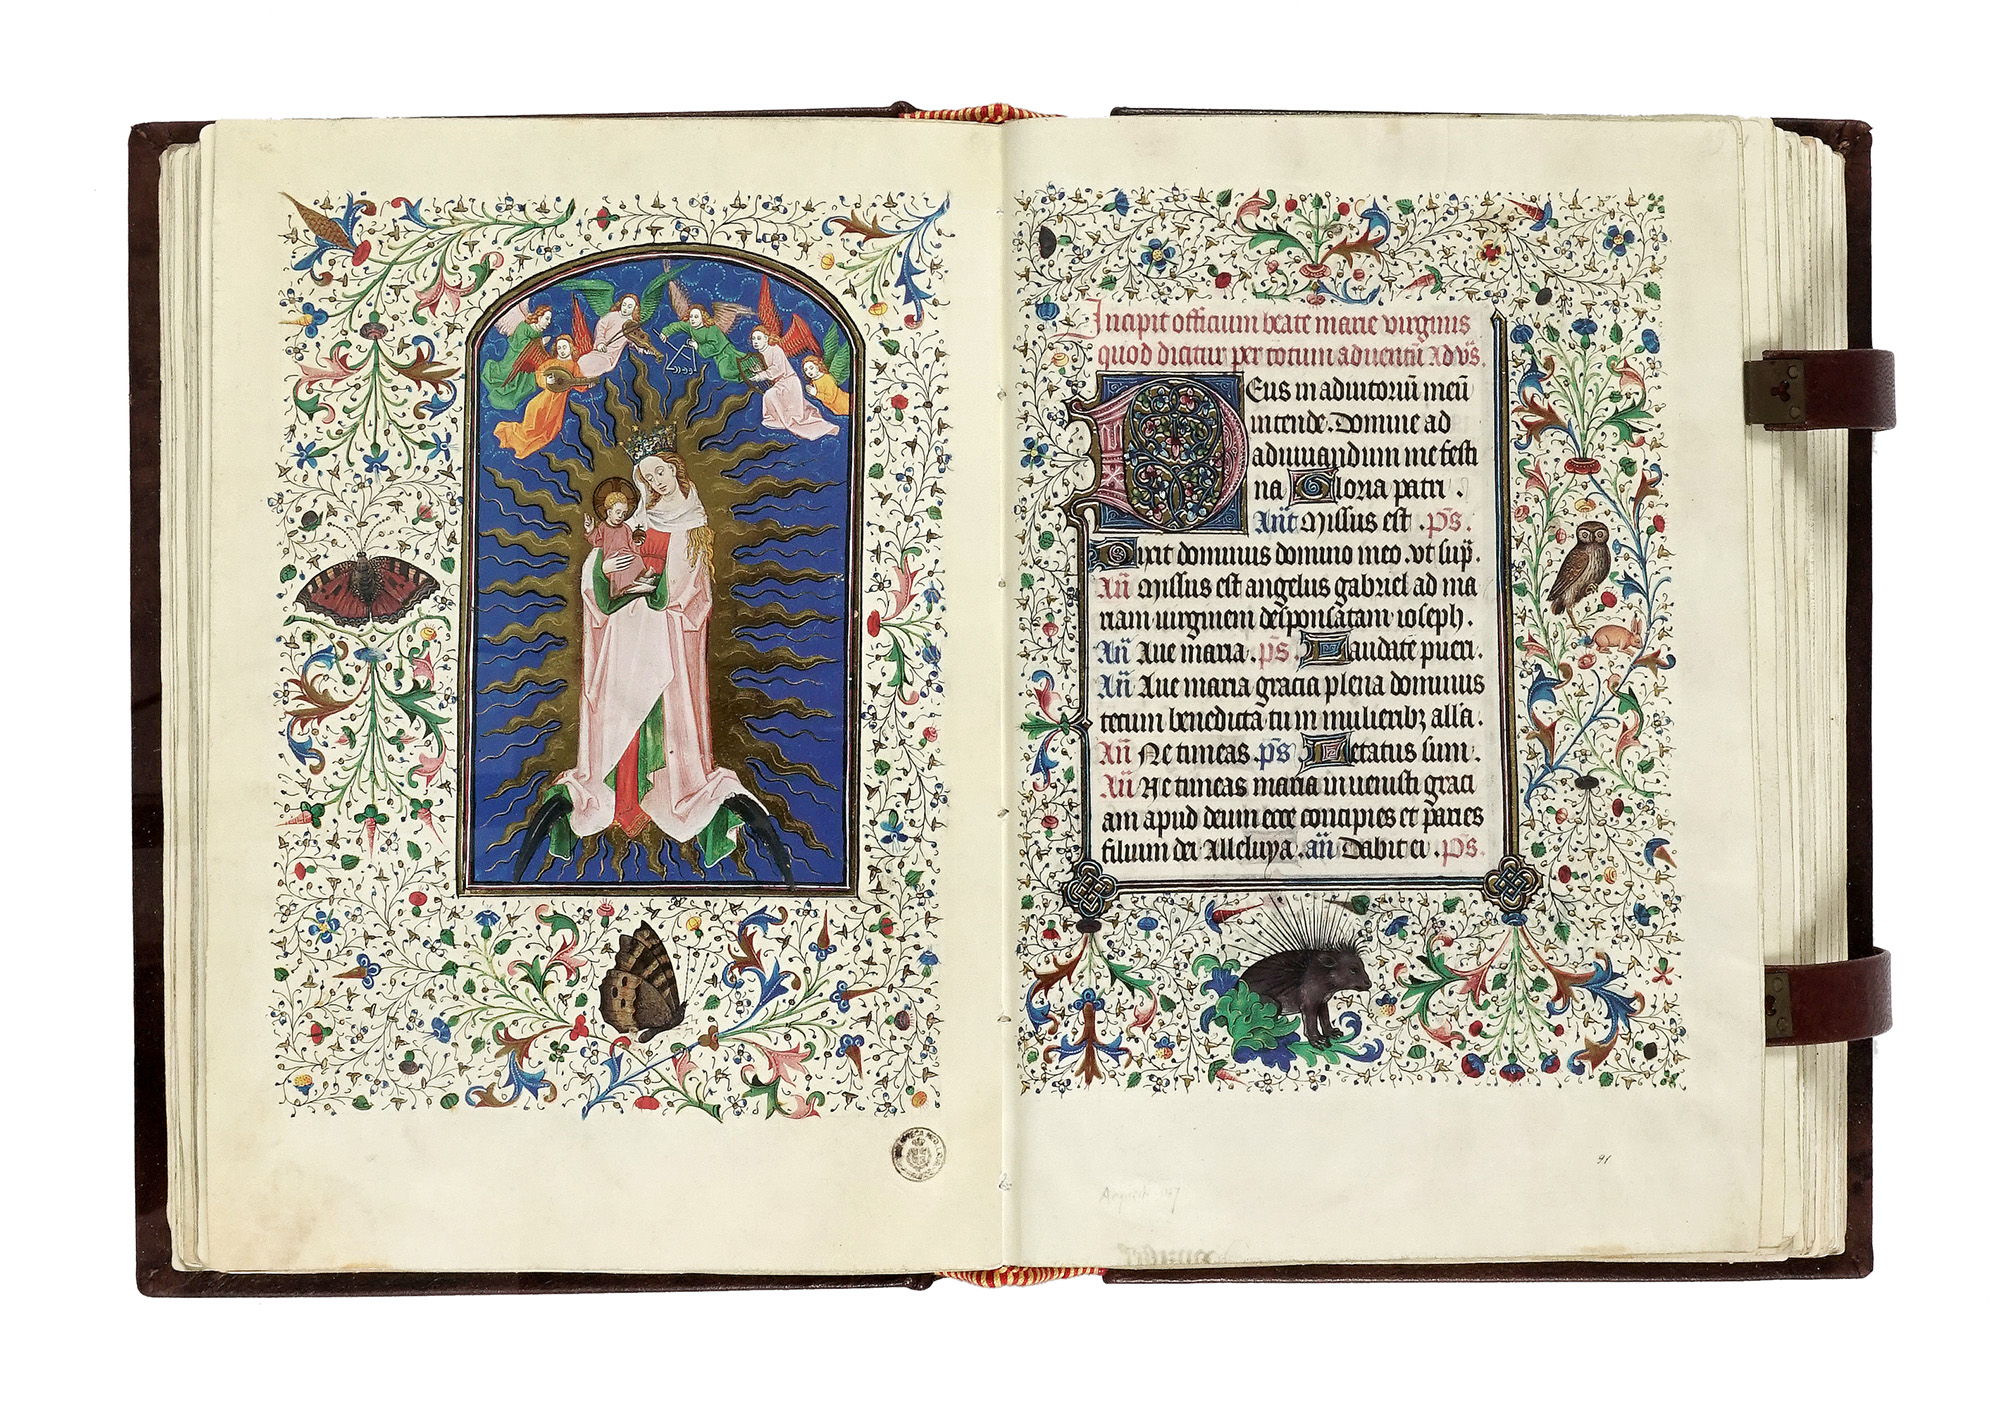 Incipit officium beate marie virginis
quod dicitur per totum aduentū Ad vs̄.
Deus in adiutoriū meū
intende. Domine ad
adiuuandum me festi
na Gloria patri.
An̄t Missus est. ps̄.
Dixit dominus domino meo. vt sup̄.
An̄ Missus est angelus gabriel ad ma
riam uirginem desponsatam ioseph.
An̄ Aue maria. ps̄. Laudate pueri.
An̄ Aue maria gracia plena dominus
tecum benedicta tu in mulieribꝫ all'a.
An̄ Ne timeas. ps̄ Letatus sum.
An̄ Ne timeas maria inuenisti graci
am apud deum ecce concipies et paries
filium dei Alleluya. an̄ Dabit ei. ps̄.
91